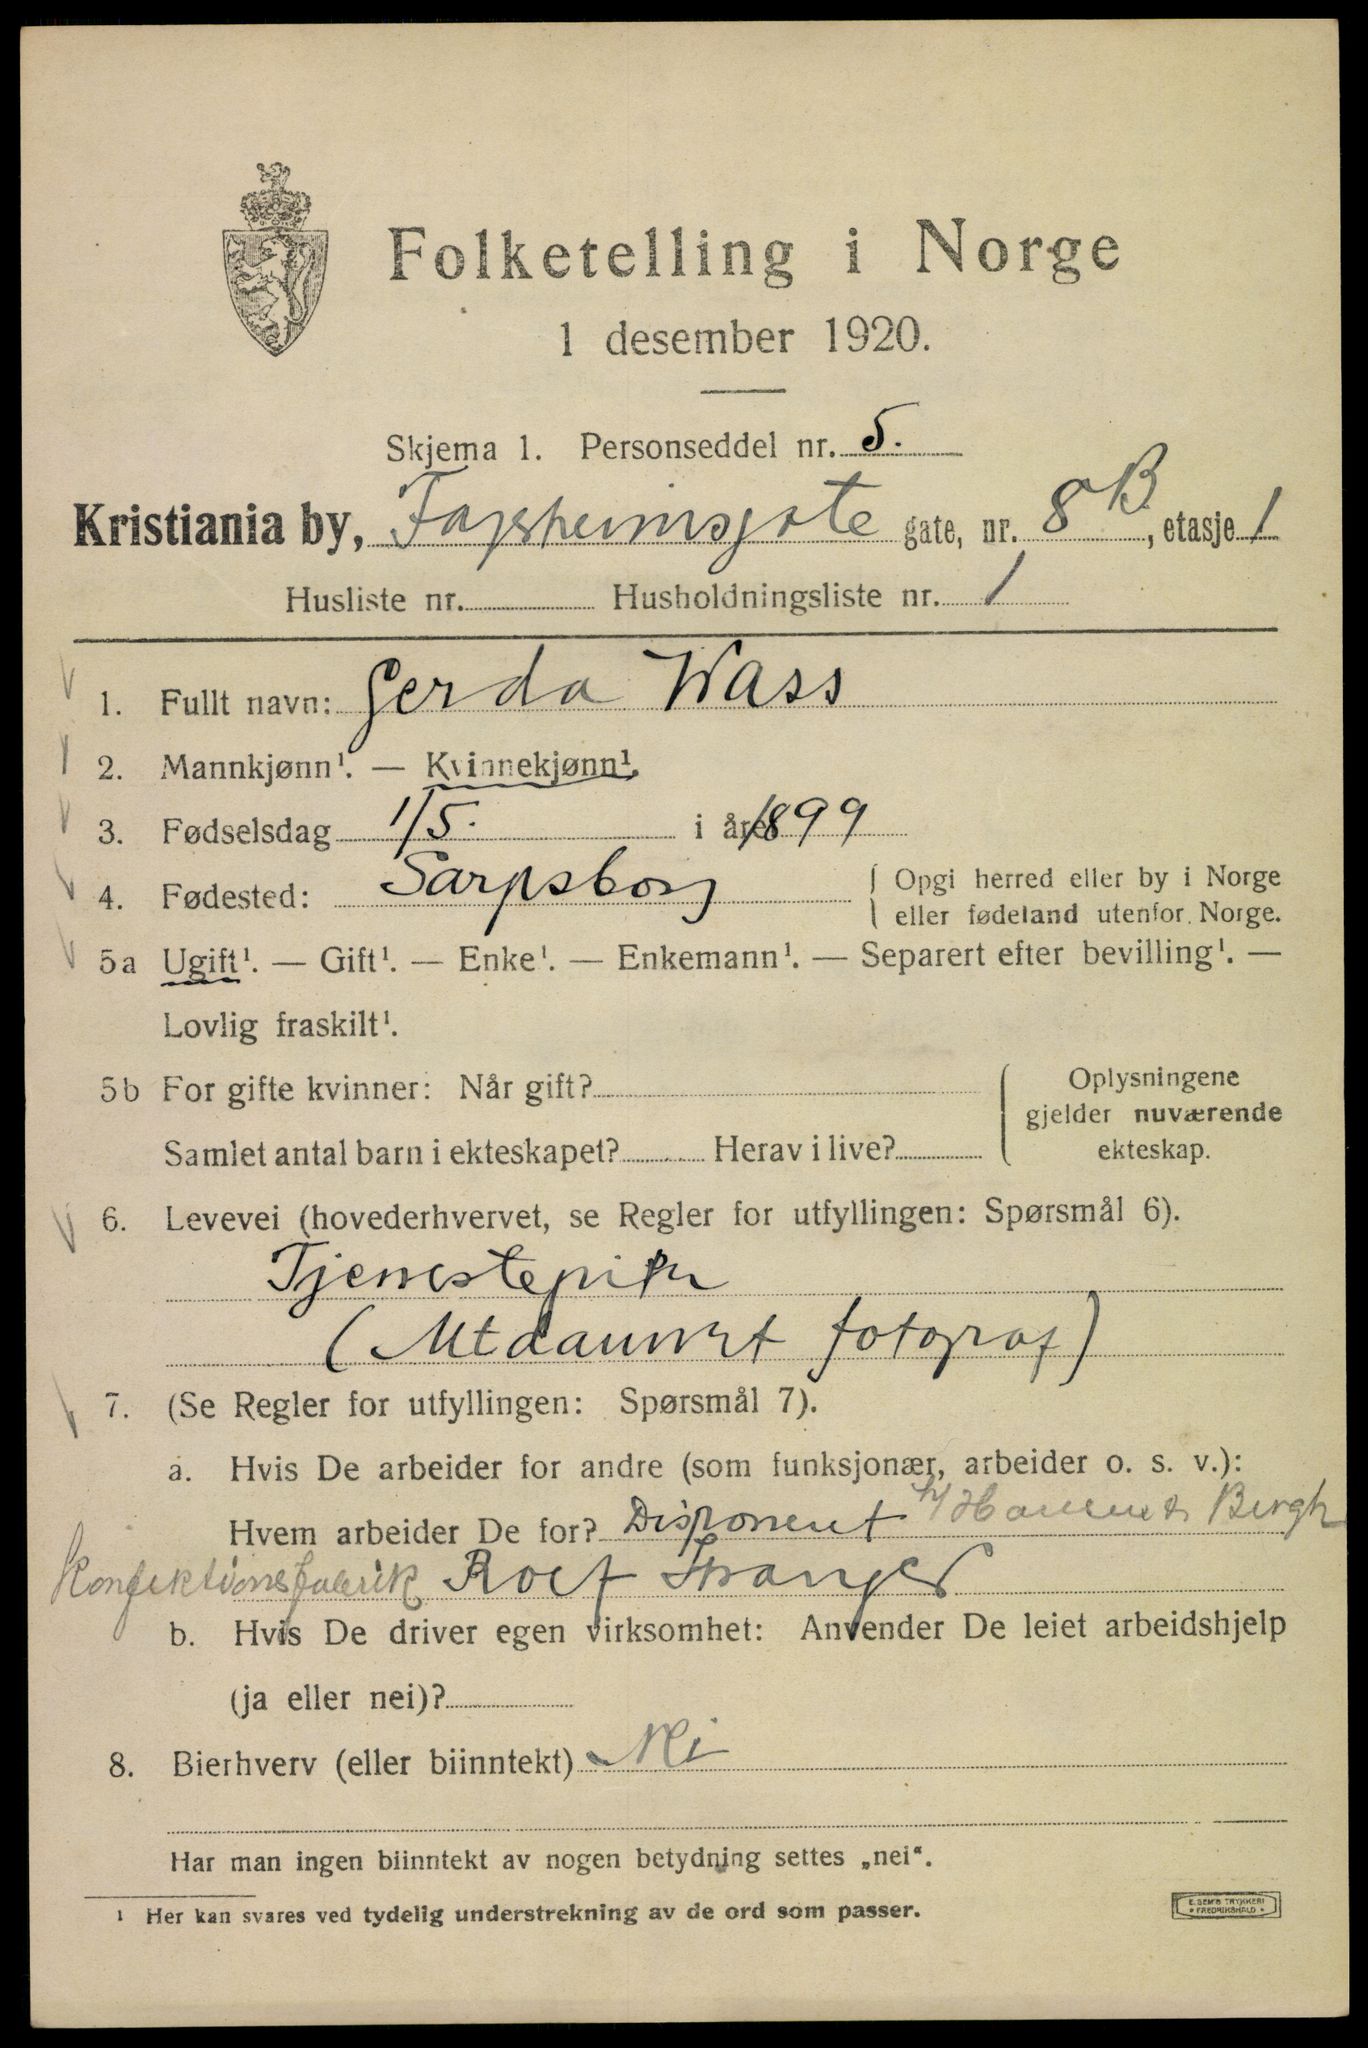 Folketelling i Norge
1 desember 1920.
Skjema 1. Personseddel nr. 5.
Kristiania by, Fagerheimsgate gate, nr. 8 B, etasje 1
Husliste nr. Husholdningsliste nr. 1
1. Fullt navn: Gerda Wass
2. Mannkjønn¹. — Kvinnekjønn¹.
3. Fødselsdag 1/5. i året 1899
4. Fødested: Sarpsborg { Opgi herred eller by i Norge
eller fødeland utenfor Norge.
5a Ugift¹. — Gift¹. — Enke¹. — Enkemann¹. — Separert efter bevilling¹. —
Lovlig fraskilt¹.
5b For gifte kvinner: Når gift?
Samlet antal barn i ekteskapet? Herav i live?
Oplysningene
gjelder nuværende
ekteskap.
6. Levevei (hovederhvervet, se Regler for utfyllingen: Spørsmål 6).
Tjenestepike
(Utdannet fotograf)
7. (Se Regler for utfyllingen: Spørsmål 7).
a. Hvis De arbeider for andre (som funksjonær, arbeider o. s. v.):
Hvem arbeider De for? Disponent Bergh
Konfektionsfabrik Rolf Stranger
b. Hvis De driver egen virksomhet: Anvender De leiet arbeidshjelp
(ja eller nei)?
8. Bierhverv (eller biinntekt) Nei
Har man ingen biinntekt av nogen betydning settes „nei“.
¹ Her kan svares ved tydelig understrekning av de ord som passer.
E. SEM'S TRYKKERI
* FREDRIKSHALD *